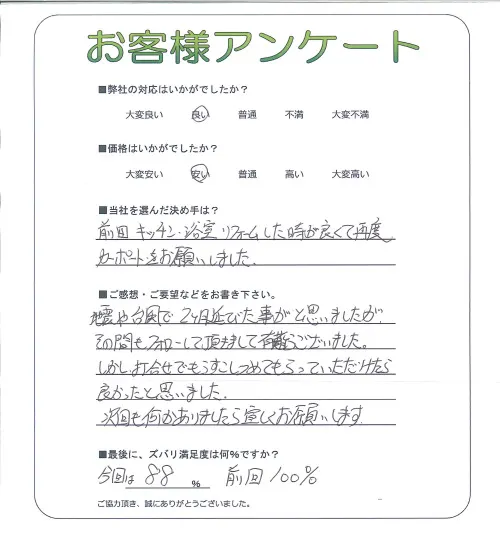 お客様アンケート
■弊社の対応はいかがでしたか？
大変良い 良い 普通 不満 大変不満
■価格はいかがでしたか？
大変安い 安い 普通 高い 大変高い
■当社を選んだ決め手は？
前回キッチン・浴室リフォームした時が良くて再度
カーポートをお願いしました。
■ご感想・ご要望などをお書き下さい。
地震や台風で2ヶ月延びた事がと思いましたが、
その間もフォローして頂きまして有難うございました。
しかし打合せでもう少しつめてもらっていただけたら
良かったと思いました。
次回も何かありましたら宜しくお願いします
■最後に、ズバリ満足度は何%ですか？
今回は 88 % 前回 100%
ご協力頂き、誠にありがとうございました。